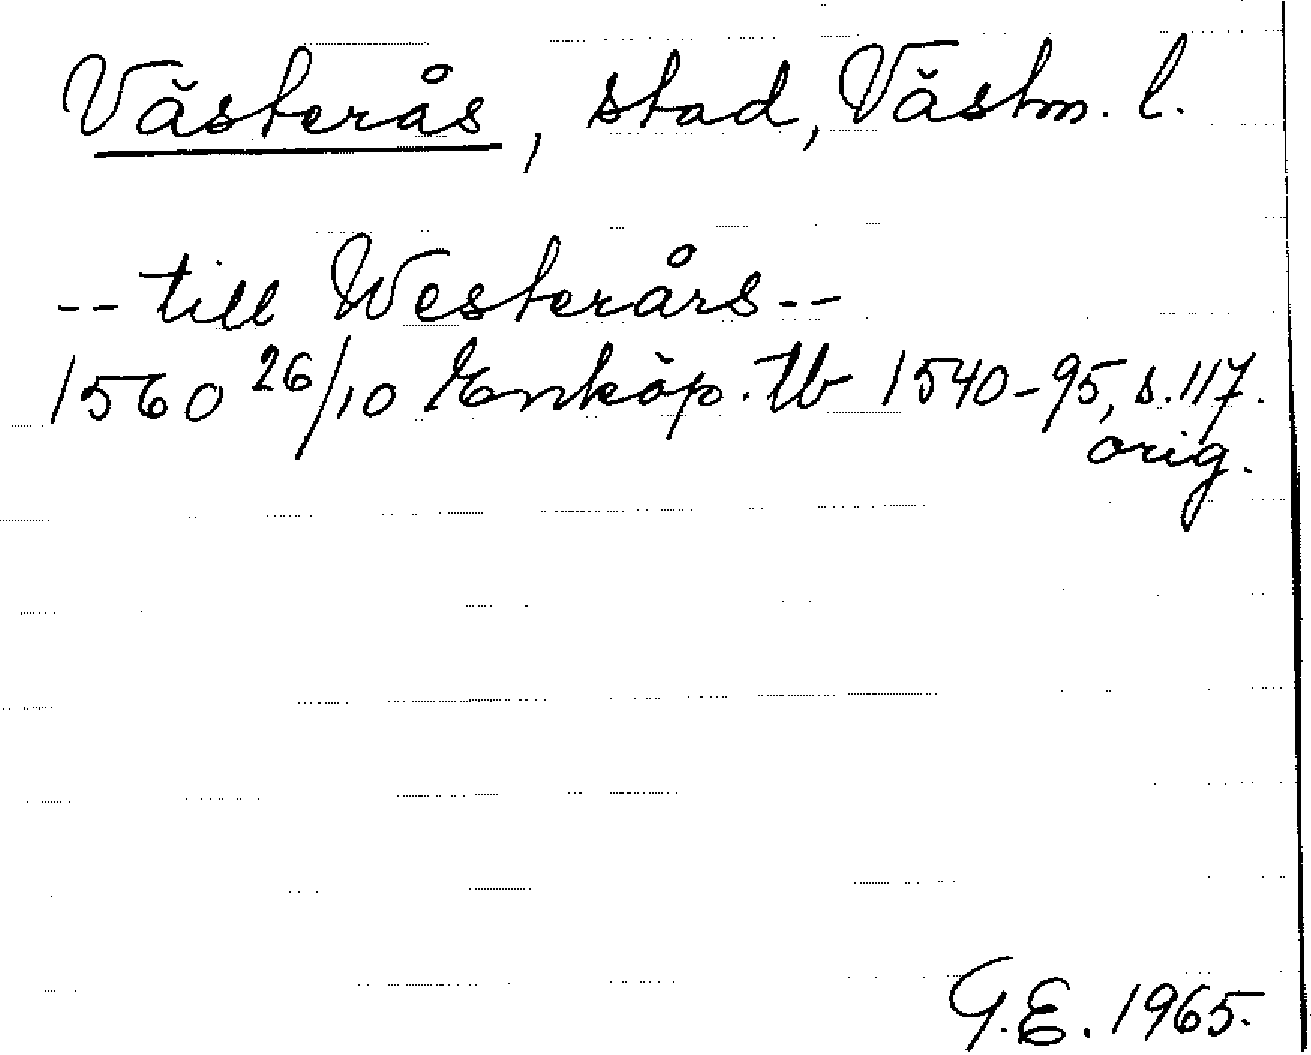 Västerås, stad, Västm. l.
-- till Westerårs --
1560 26/10 Enköp. tb 1540-95, s. 117.
orig.
G.E. 1965.